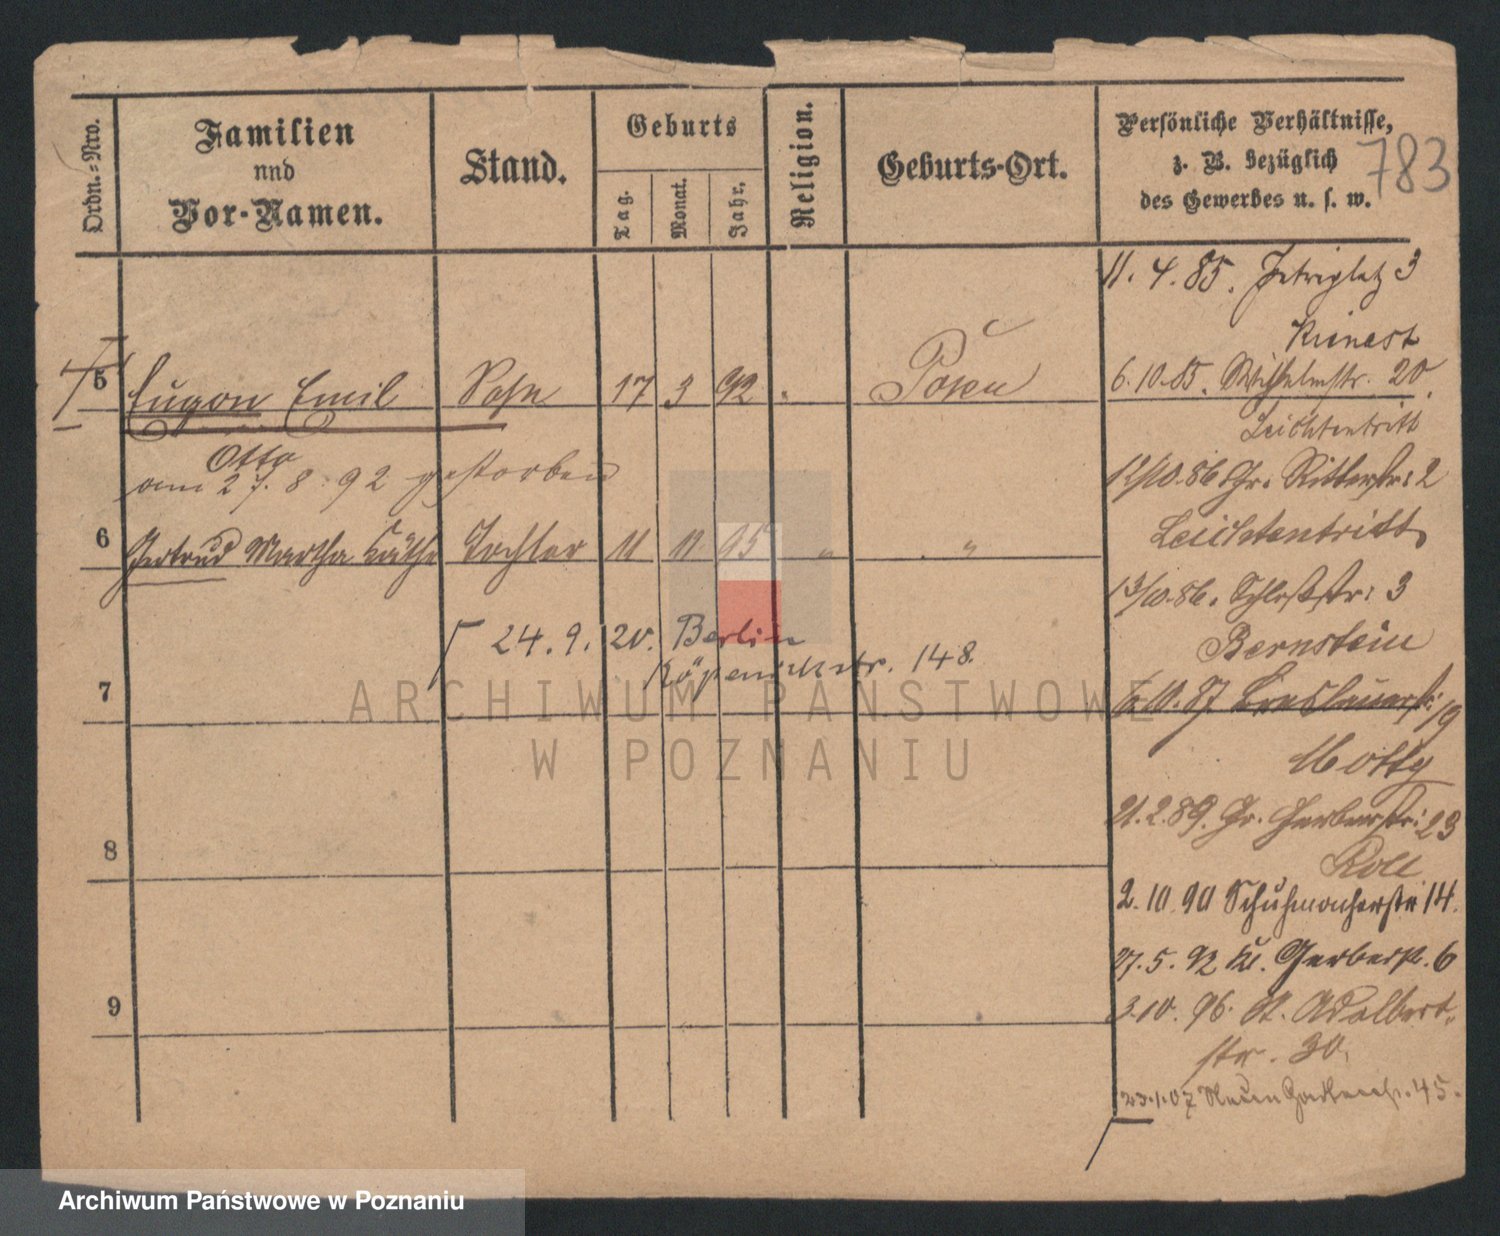 Ordn.=Nro.
Familien
und
Vor-Namen.
Stand.
Geburts
Tag.
Monat.
Jahr.
Religion.
Geburts-Ort.
Persönliche Verhältnisse,
z. B. bezüglich
des Gewerbes u. s. w.
783
11. 4. 85. Petriplatz 3
Kienast
5 Eugen Emil Sohn 17 3 92 Posen
Otto
am 27. 8. 92 gestorben
6 Gertrud Martha Käthe Tochter 11 11 95 " "
24. 9. 20. Berlin
Köpenickstr. 148.
7
8
9
6. 10. 85. Wilhelmstr. 20.
Leichtentritt
12/10. 86 Gr. Ritterstr: 2
Leichtentritt
13/10. 86. Schloßstr: 3
Bernstein
6. 10. 87. Breslauerstr: 19
Motty
21. 2. 89. Gr. Gerberstr: 23
2. 10. 90 Schuhmacherstr 14.
27. 5. 92 Kl. Gerberstr. 6
3. 10. 96. St. Adalbert-
str. 30.
23. 1. 07 45.
ARCHIWUM PAŃSTWOWE
W POZNANIU
Archiwum Państwowe w Poznaniu